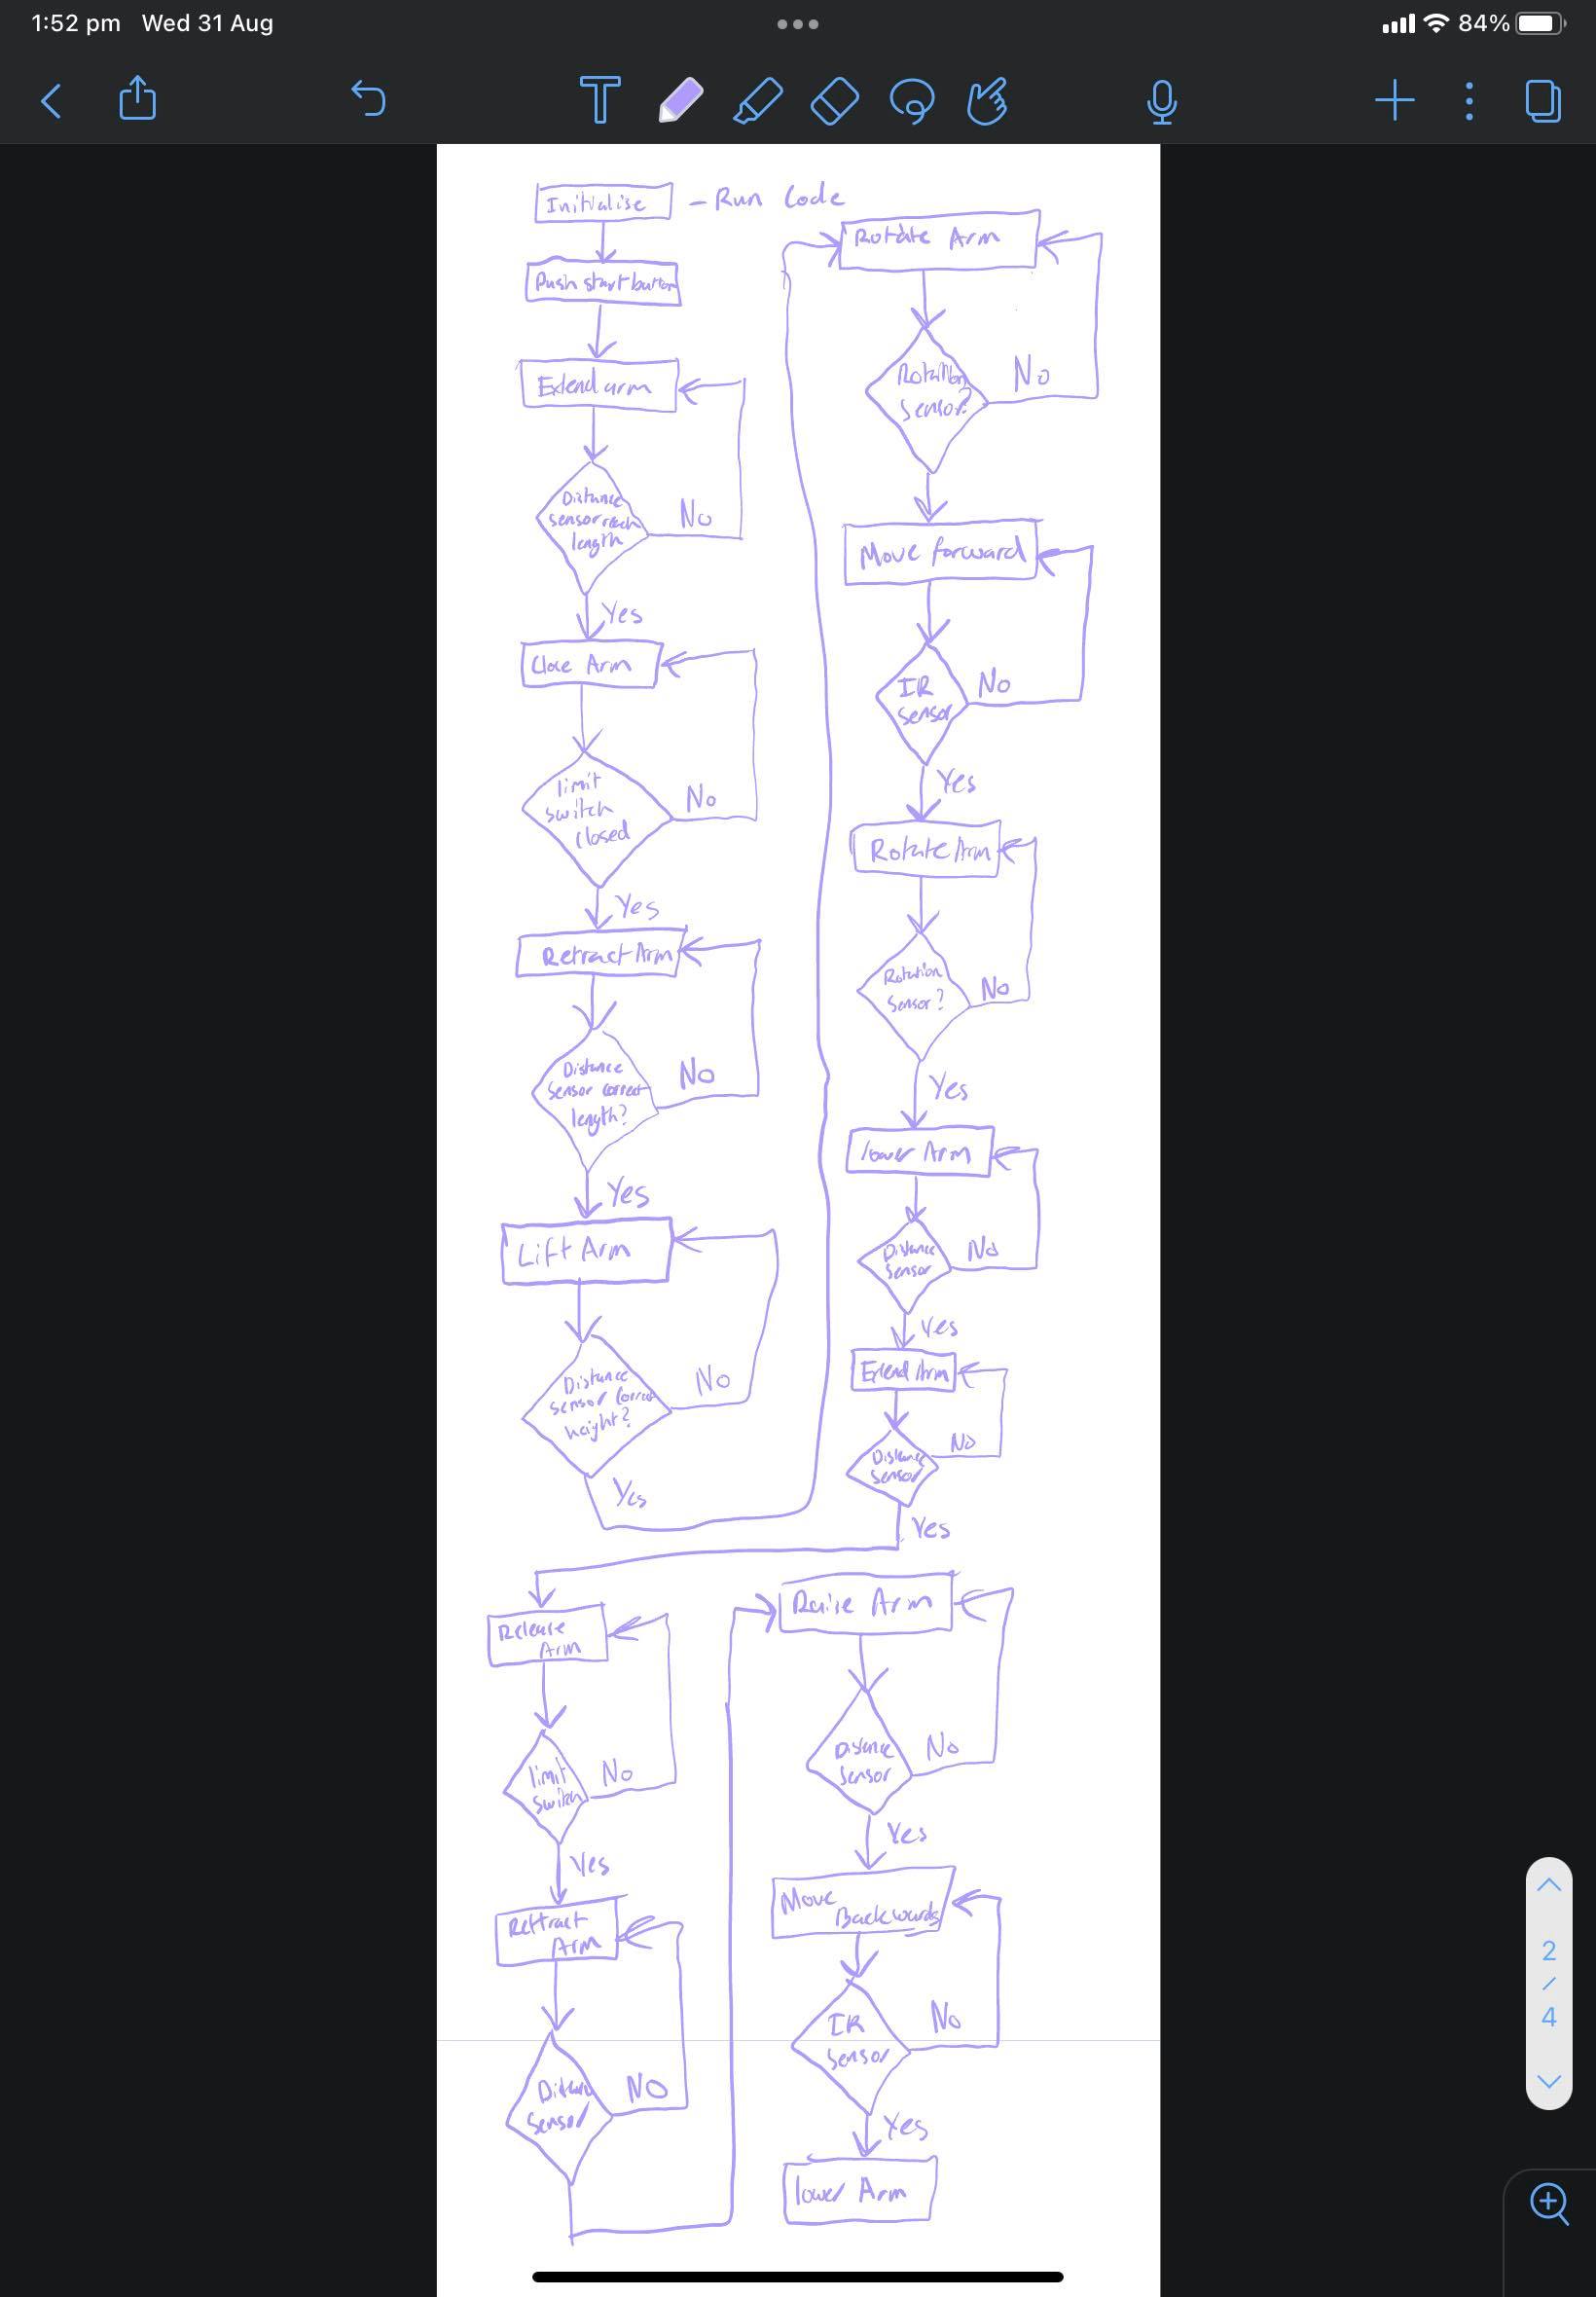 1:52 pm Wed 31 Aug
84%
Initialise - Run Code
Push start button
Extend arm
Distance
sensor reach
length
No
Yes
Close Arm
limit
switch
closed
No
Yes
Retract Arm
Distance
sensor correct
length?
No
Yes
Lift Arm
Distance
sensor correct
height?
No
Yes
Rotate Arm
Rotation
sensor?
No
Move forward
IR
sensor
No
Yes
Rotate Arm
Rotation
sensor?
No
Yes
lower Arm
Distance
sensor
No
Yes
Extend Arm
Distance
sensor
No
Yes
Release
Arm
limit
switch
No
Yes
Retract
Arm
Distance
sensor
NO
Raise Arm
Distance
sensor
No
Yes
Move
Backwards
IR
sensor
No
Yes
lower Arm
2
/
4